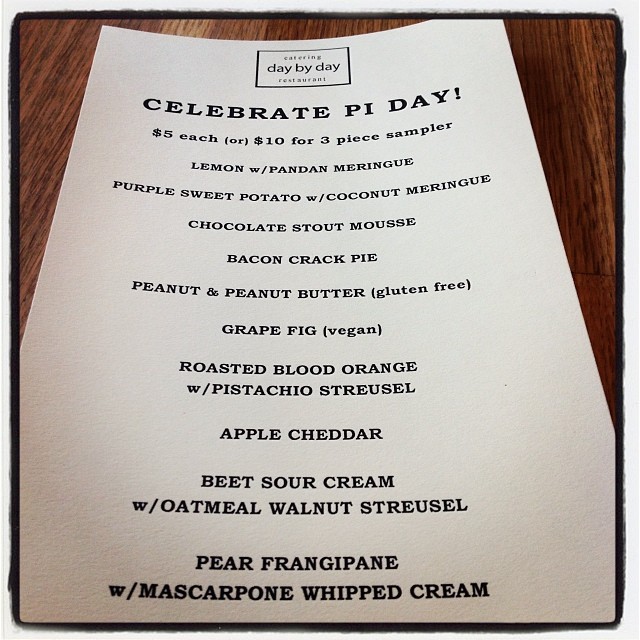 catering
day by day
restaurant
CELEBRATE PI DAY!
$5 each (or) $10 for 3 piece sampler
LEMON w/PANDAN MERINGUE
PURPLE SWEET POTATO w/COCONUT MERINGUE
CHOCOLATE STOUT MOUSSE
BACON CRACK PIE
PEANUT & PEANUT BUTTER (gluten free)
GRAPE FIG (vegan)
ROASTED BLOOD ORANGE
w/PISTACHIO STREUSEL
APPLE CHEDDAR
BEET SOUR CREAM
w/OATMEAL WALNUT STREUSEL
PEAR FRANGIPANE
w/MASCARPONE WHIPPED CREAM